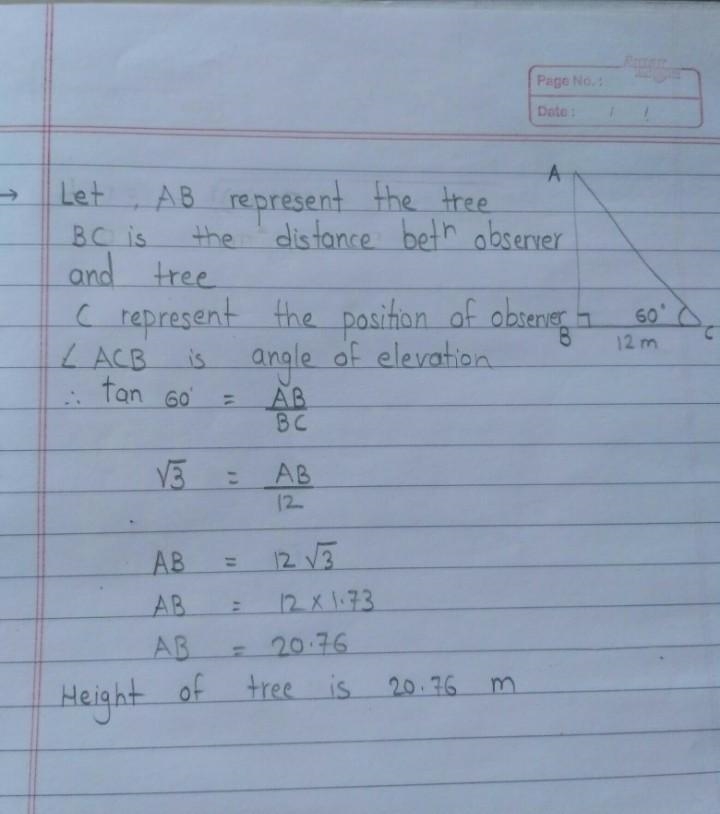 Page No. :
Date : / /
→ Let, AB represent the tree
BC is the distance betⁿ observer
and tree
C represent the position of observer
∠ACB is angle of elevation
A
B
C
60°
12 m
∴ tan 60° = AB/BC
√3 = AB/12
AB = 12√3
AB = 12 × 1.73
AB = 20.76
Height of tree is 20.76 m